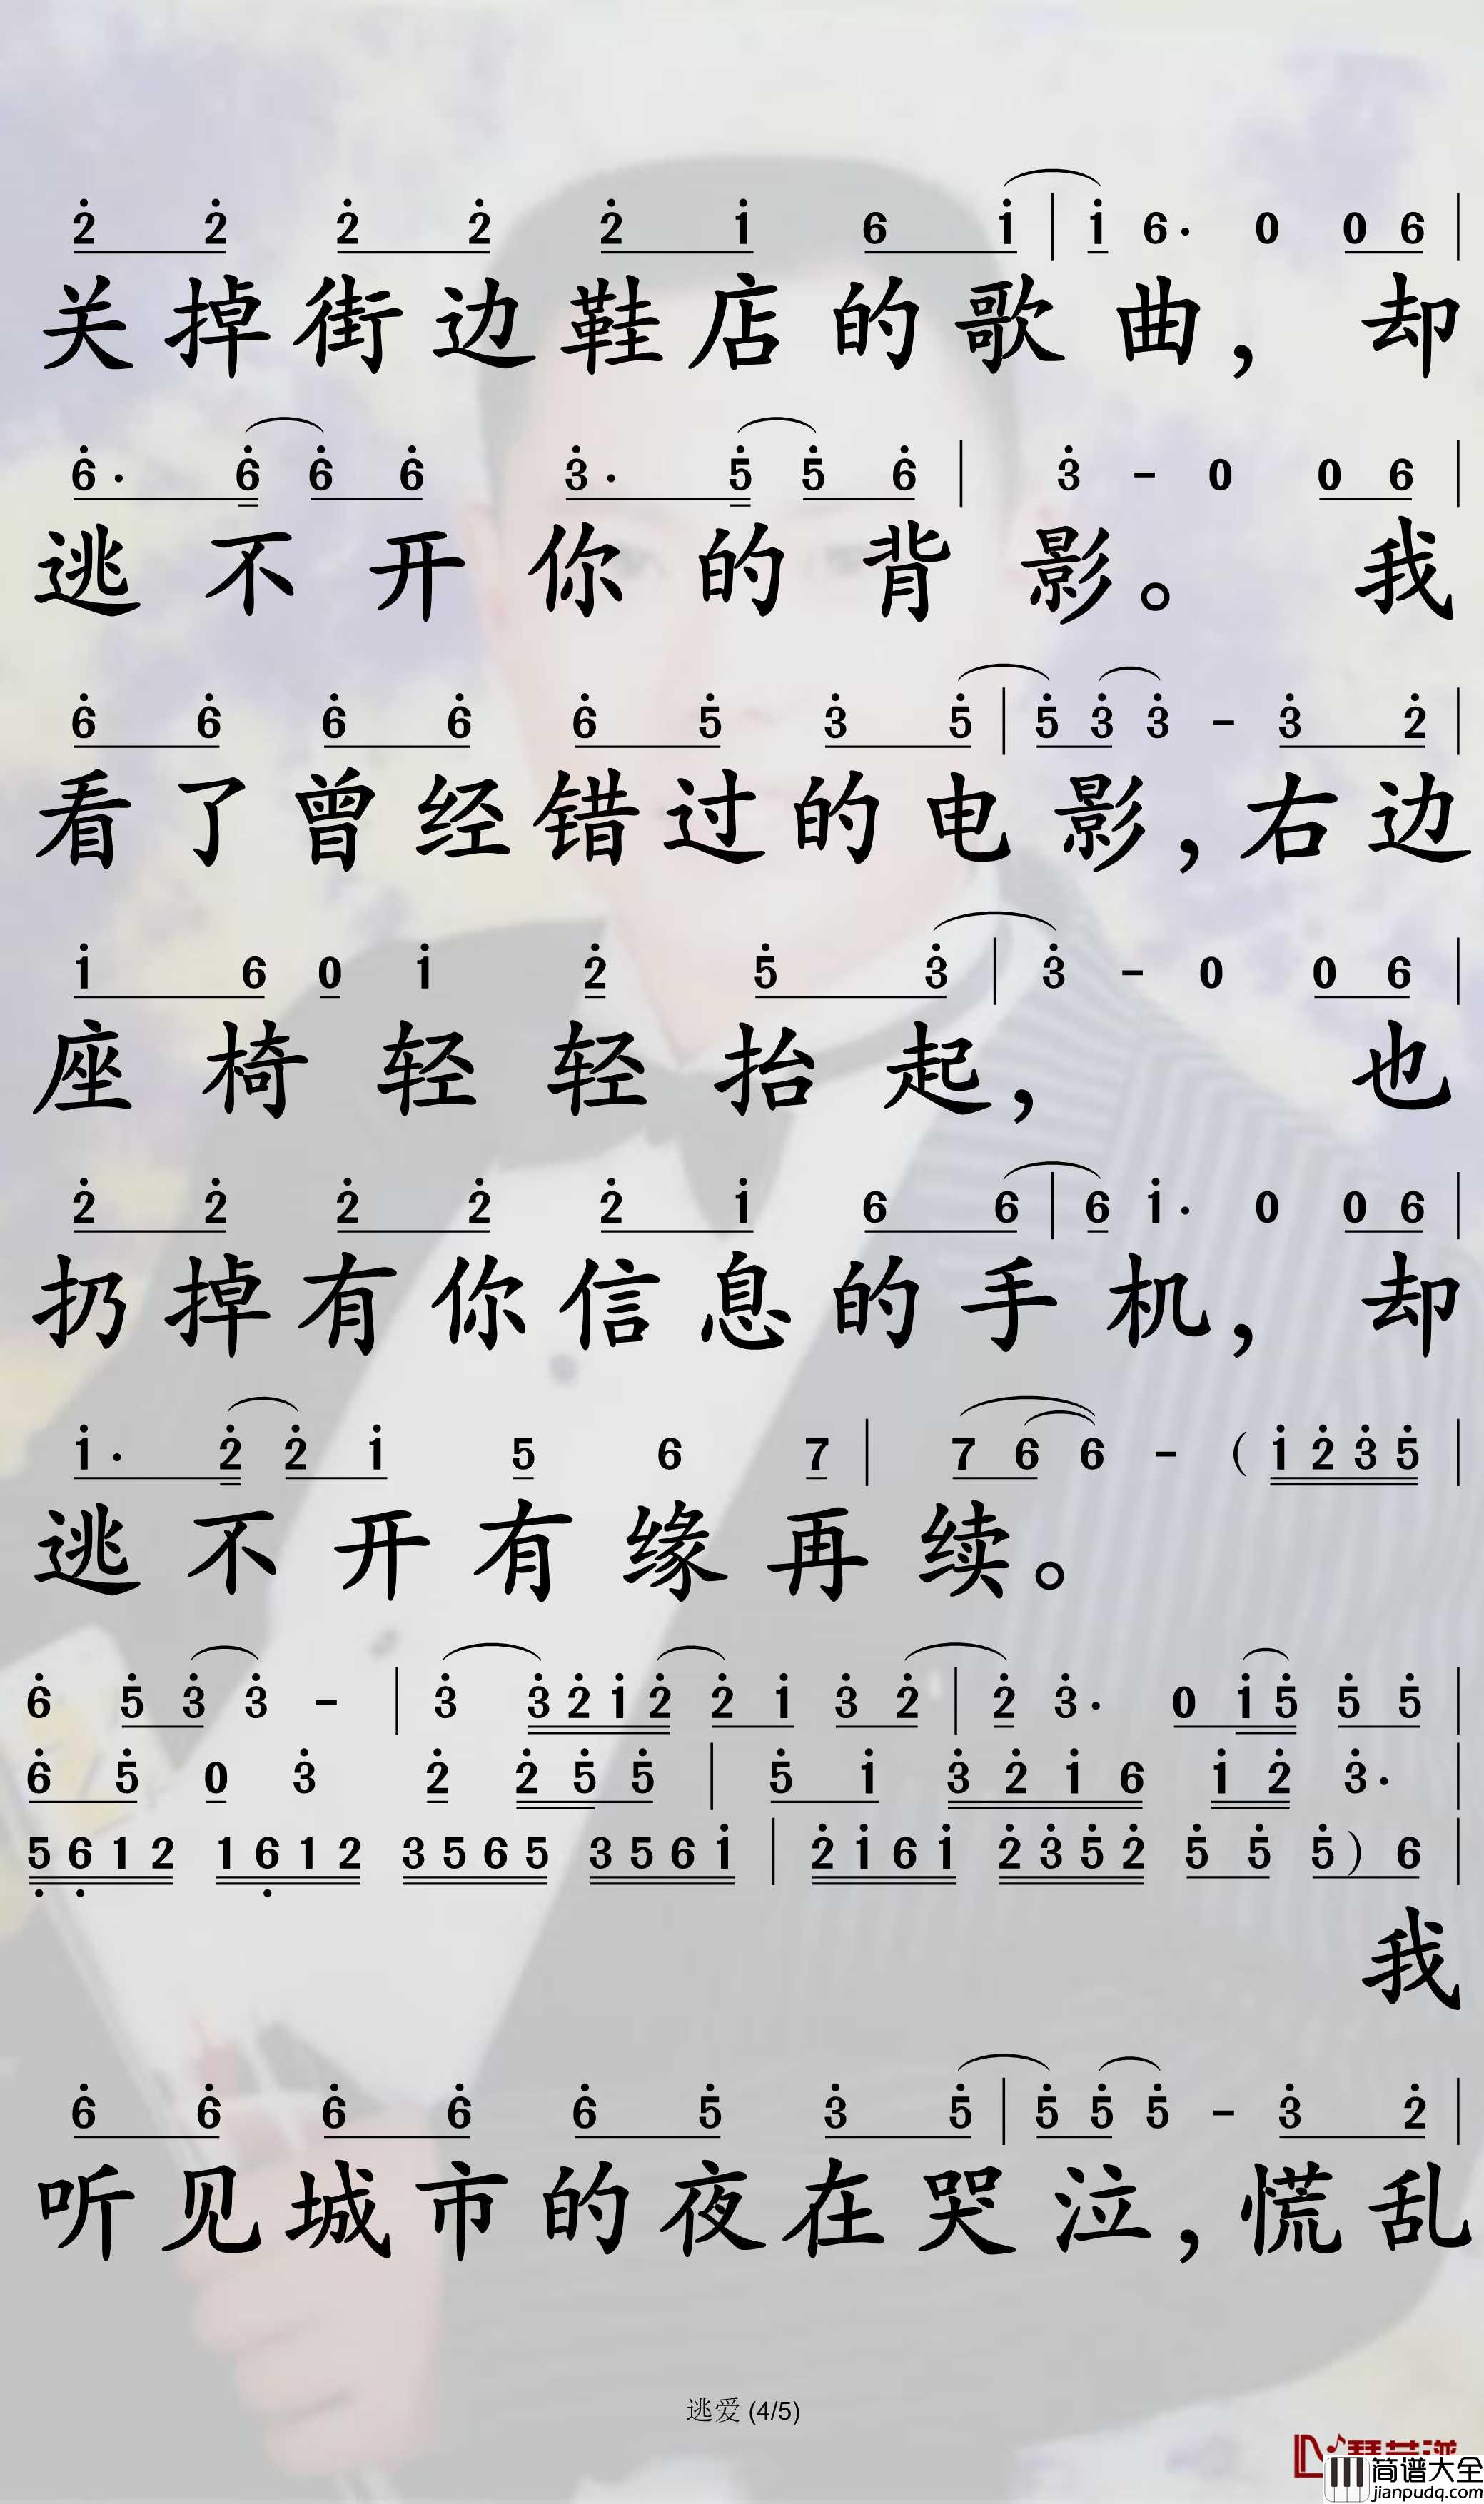 2̇ 2̇ 2̇ 2̇ 2̇ 1̇ 6 1̇ | 1̇ 6· 0 0 6 |
关掉街边鞋店的歌曲，却
6̇· 6̇ 6̇ 6̇ 3̇· 5̇ 5̇ 6̇ | 3̇ - 0 0 6 |
逃不开你的背影。我
6̇ 6̇ 6̇ 6̇ 6̇ 5̇ 3̇ 5̇ | 5̇ 3̇ 3̇ - 3̇ 2̇ |
看了曾经错过的电影，右边
1̇ 6 0 1̇ 2̇ 5̇ 3̇ | 3̇ - 0 0 6 |
座椅轻轻抬起，也
2̇ 2̇ 2̇ 2̇ 2̇ 1̇ 6 6 | 6 1̇· 0 0 6 |
扔掉有你信息的手机，却
1̇· 2̇ 2̇ 1̇ 5 6 7 | 7 6 6 - （ 1̇ 2̇ 3̇ 5̇ |
逃不开有缘再续。
6̇ 5̇ 3̇ 3̇ - | 3̇ 3̇ 2̇ 1̇ 2̇ 2̇ 1̇ 3̇ 2̇ | 2̇ 3̇· 0 1̇ 5̇ 5̇ 5̇ |
6̇ 5̇ 0 3̇ 2̇ 2̇ 5̇ 5̇ | 5̇ 1̇ 3̇ 2̇ 1̇ 6 1̇ 2̇ 3̇· |
5̣ 6̣ 1 2 1 6̣ 1 2 3 5 6 5 3 5 6 1̇ | 2̇ 1̇ 6 1̇ 2̇ 3̇ 5̇ 2̇ 5̇ 5̇ 5̇ ） 6 |
我
6̇ 6̇ 6̇ 6̇ 6̇ 5̇ 3̇ 5̇ | 5̇ 5̇ 5̇ - 3̇ 2̇ |
听见城市的夜在哭泣，慌乱
逃爱 (4/5)
简谱大全
jianpudq.com